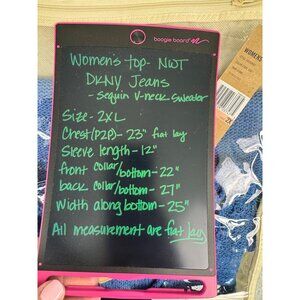 boogie board
Women's top- NWT
DKNY Jeans
- Sequin V-neck Sweater
Size- 2XL
Chest(P2P)- 23" flat lay
Sleeve length- 12"
front collar/bottom- 22"
back collar/bottom- 27"
Width along bottom- 25"
All measurement are flat lay
WOMENS